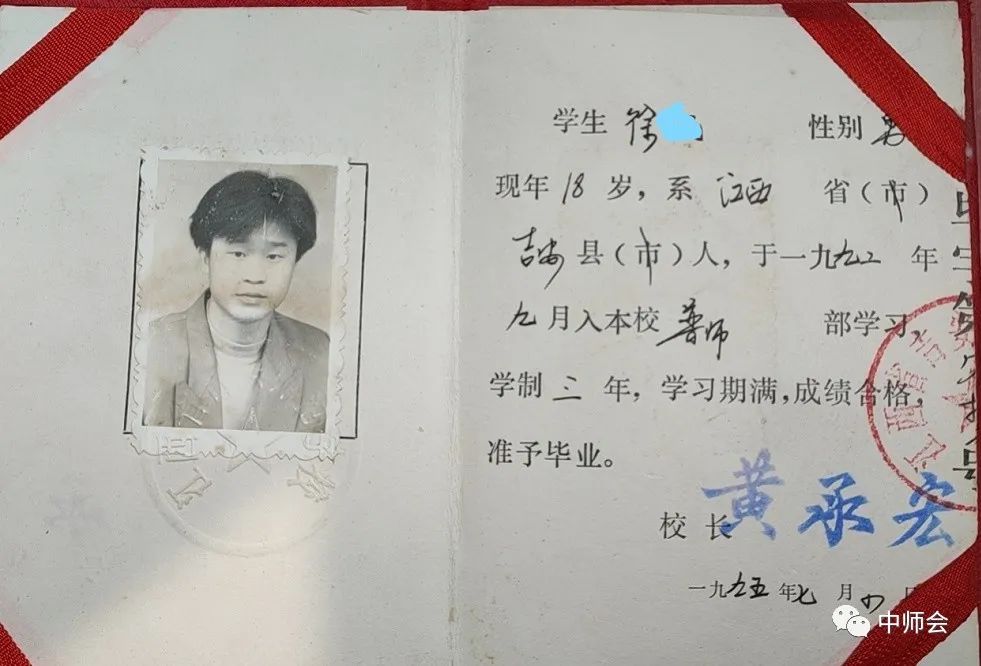 学生 徐 性别 男
现年 18 岁，系 江西 省（市）
吉安 县（市）人，于一九九二 年
九 月入本校 普师 部学习，
学制 三 年，学习期满，成绩合格，
准予毕业。
校 长 黄承宏
一九九五 年 七 月 四 日
中师会